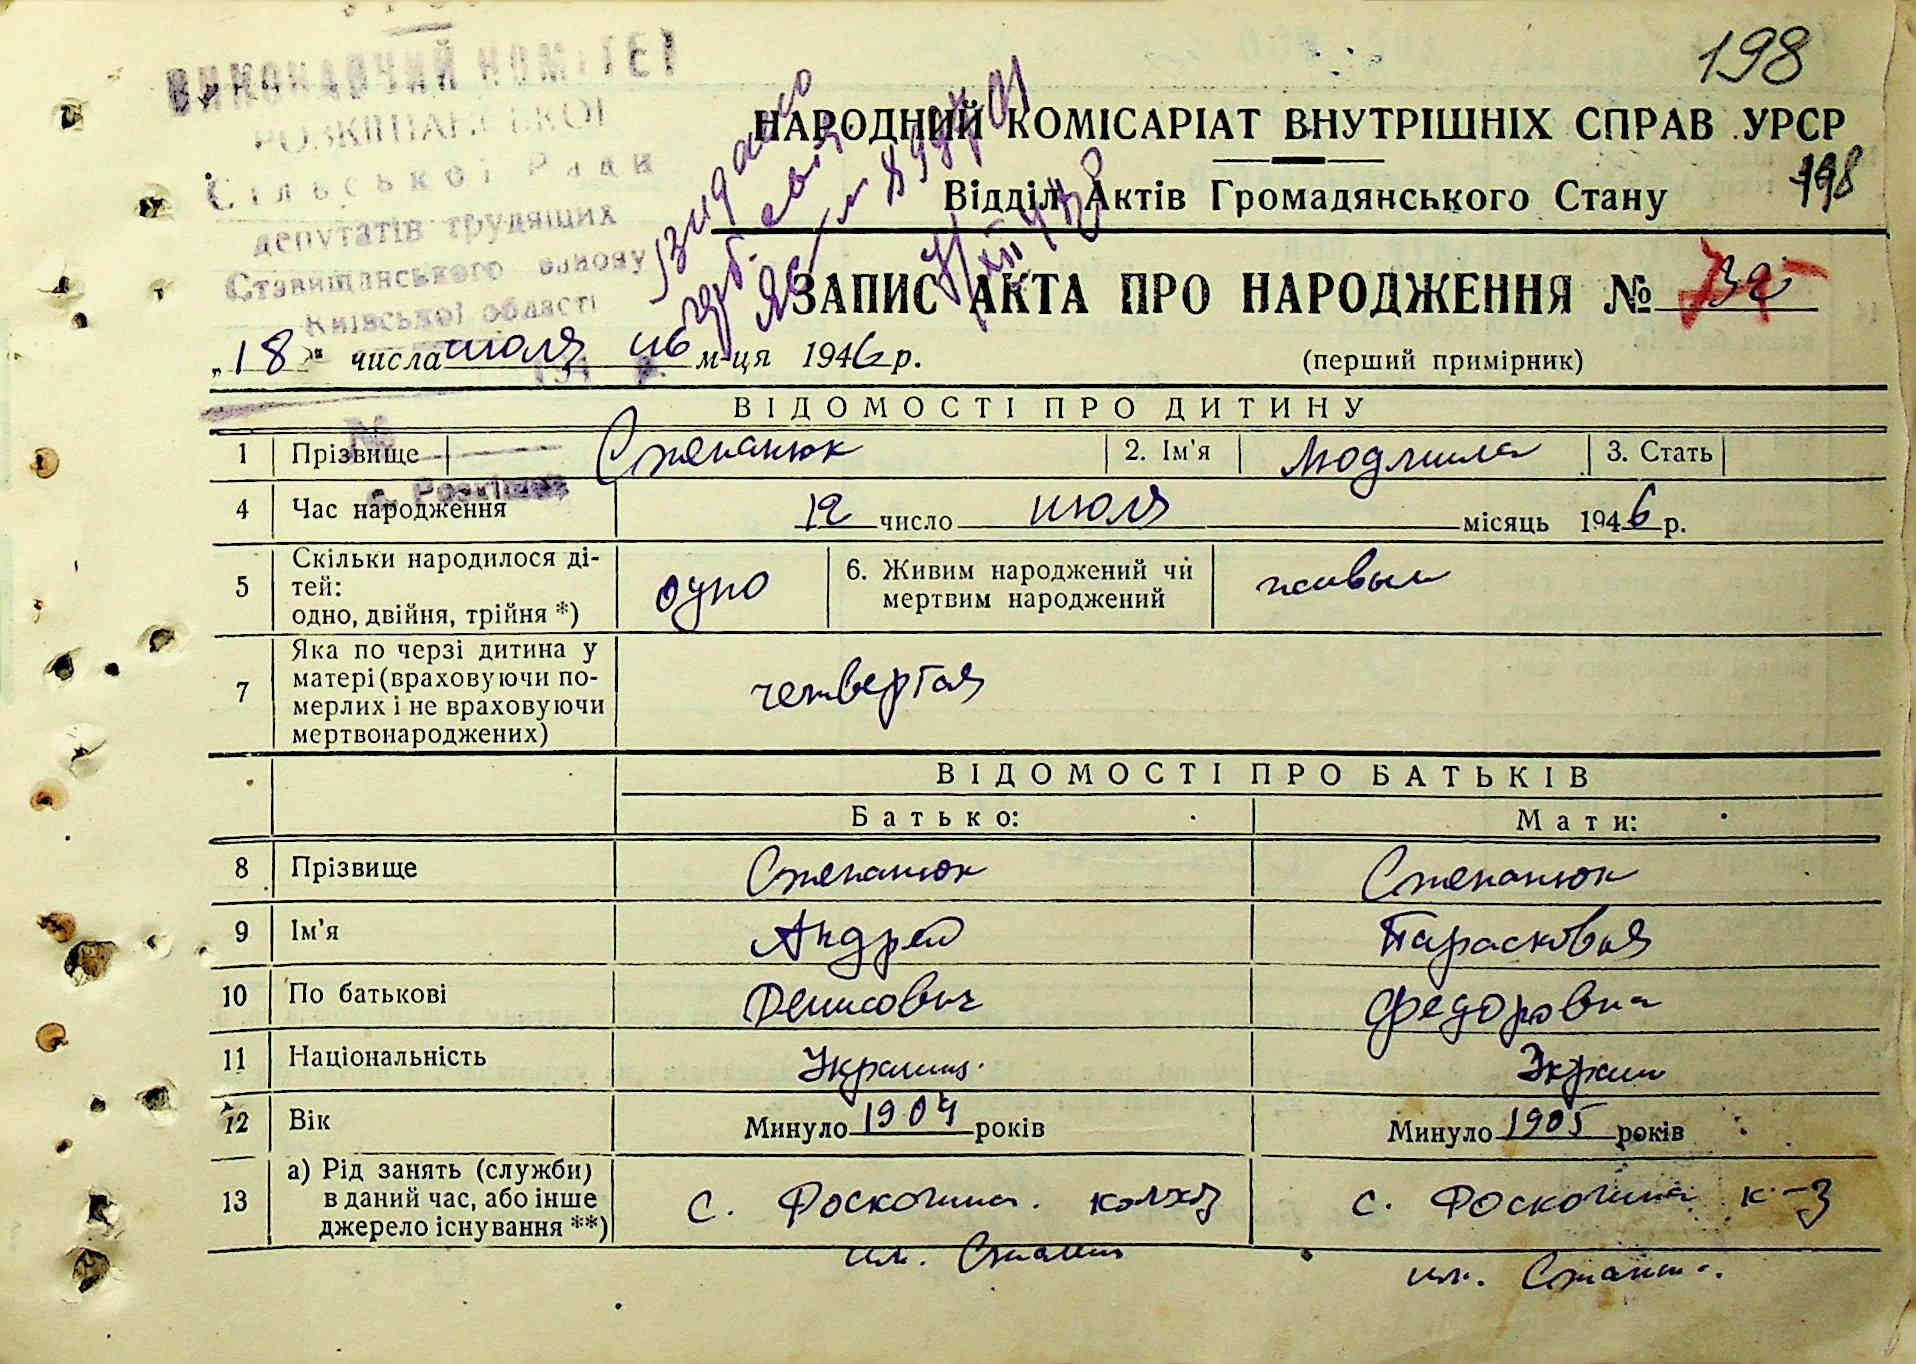 198
ВИКОНАВЧИЙ КОМІТЕТ
РОЗКІШАНСЬКОЇ
Сільської Ради
депутатів трудящих
Ставищанського району
Київської області
НАРОДНИЙ КОМІСАРІАТ ВНУТРІШНІХ СПРАВ УРСР
Відділ Актів Громадянського Стану 198
ЗАПИС АКТА ПРО НАРОДЖЕННЯ №
„18“ числа июля м-ця 1946 р. (перший примірник)
ВІДОМОСТІ ПРО ДИТИНУ
1 Прізвище Степанюк 2. Ім'я Людмила 3. Стать
4 Час народження 12 число июля місяць 1946 р.
5 Скільки народилося ді-
тей:
одно, двійня, трійня *) одно 6. Живим народжений чи
мертвим народжений живым
7 Яка по черзі дитина у
матері (враховуючи по-
мерлих і не враховуючи
мертвонароджених) четвертая
ВІДОМОСТІ ПРО БАТЬКІВ
Батько: Мати:
8 Прізвище Степанюк Степанюк
9 Ім'я Андрей Парасковья
10 По батькові Денисович Федоровна
11 Національність Украинц. Украин
12 Вік Минуло 1904 років Минуло 1905 років
13 а) Рід занять (служби)
в даний час, або інше
джерело існування **) с. Роскошна. колхоз с. Роскошна к-з
им. Сталин им. Сталин.